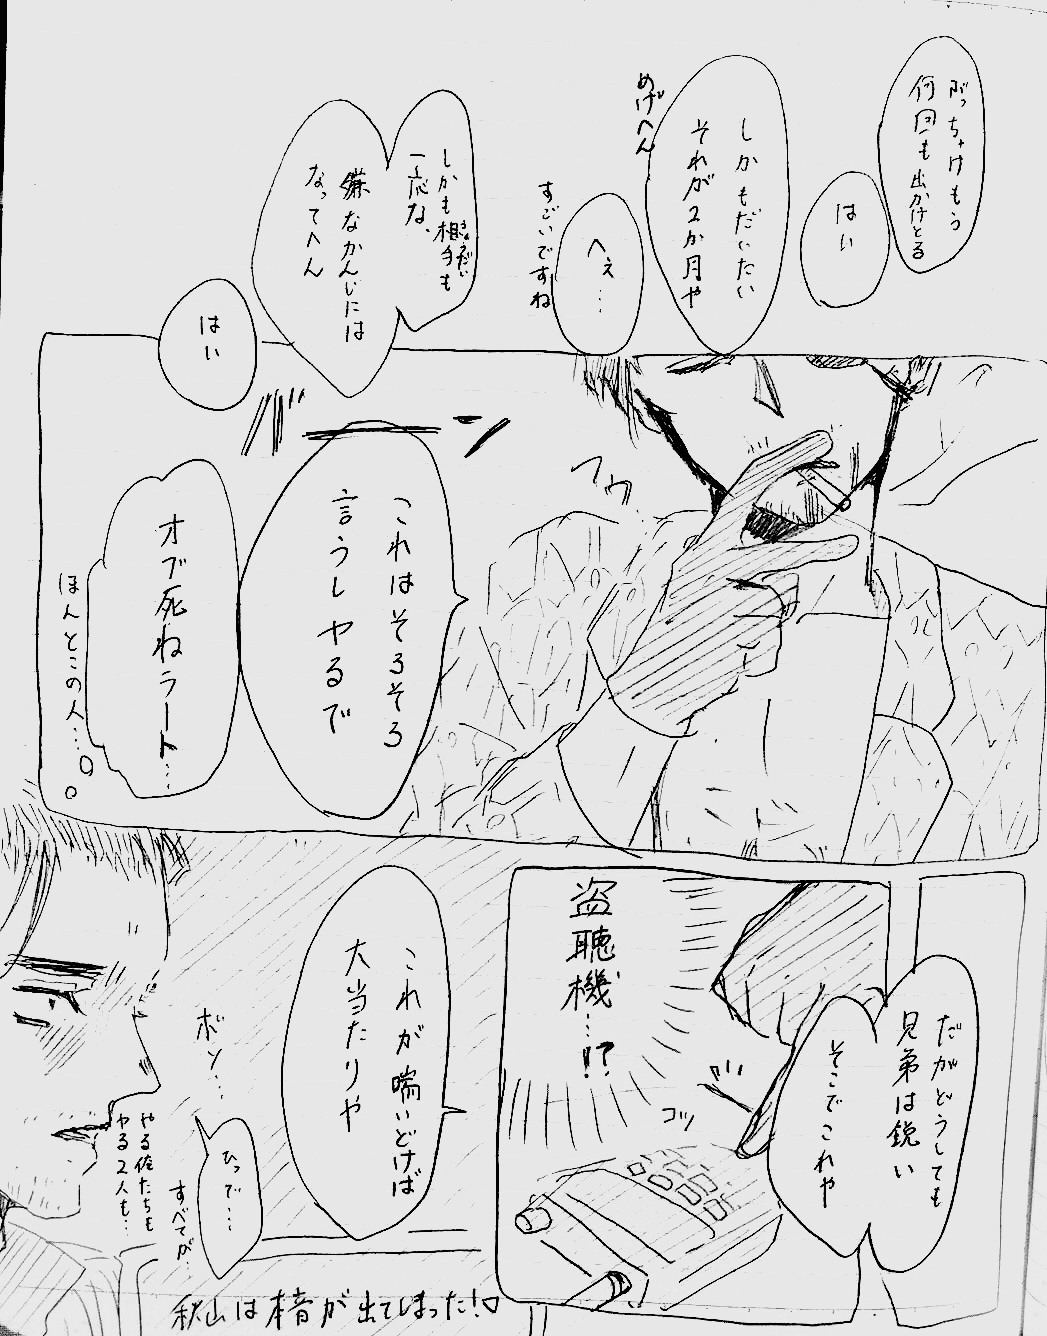 ぶっちゃけもう
何回も出かけとる
はい
しかもだいたい
それが2か月や
めげへん
へえ…
すごいですね
しかも相手も
きょうだい
一応な、
嫌なかんじには
なってへん
はい
バーン
フゥ
これはそろそろ
言うしヤるで
オブ死ねラート…
ほんとこの人…
だがどうしても
兄弟は鋭い
そこでこれや
盗聴機…!?
コツ
これが喘いどけば
大当たりや
ボソ…
ひっで…
すべてが…
やる俺たちも
ヤる2人も…
秋山は本音が出てしまった!♡